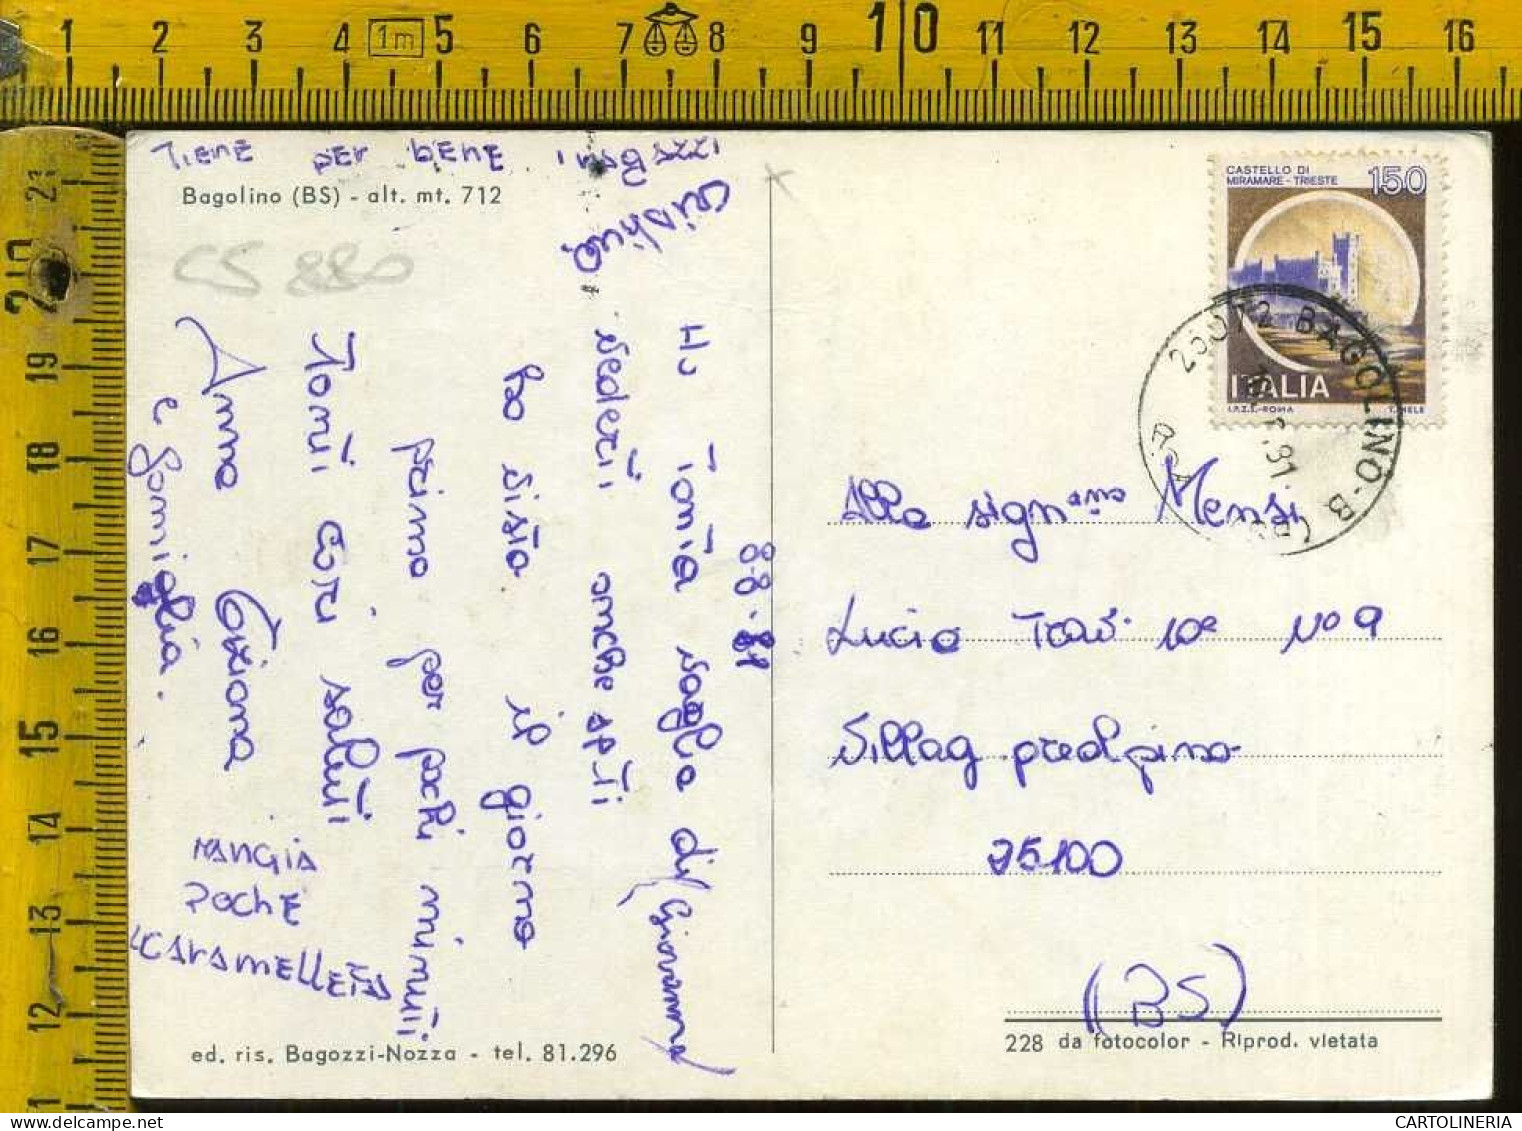 1 2 3 4 1m 5 6 7 8 9 10 11 12 13 14 15 16
21
20
19
18
17
16
15
14
13
12
11
Tiene per bene
Bacissi
Cristina
Bagolino (BS) - alt. mt. 712
CS 880
8-8-81
Ho tonta voglia di
vederti anche se ti
ho visto il giorno
primo per pochi minuti
Tonti cori saluti
Anna Tiziana Giovanna
e famiglia.
MANGIA
POCHE
CARAMELLE
CASTELLO DI
MIRAMARE - TRIESTE
150
ITALIA
I.P.Z.S.-ROMA
25072 BAGOLINO-B
Alla sign.ina Mensi
Lucia Trav. 10ª N° 9
Villag predpino
25100
(BS)
ed. ris. Bagozzi-Nozza - tel. 81.296
228 da fotocolor - Riprod. vietata
CARTOLINERIA